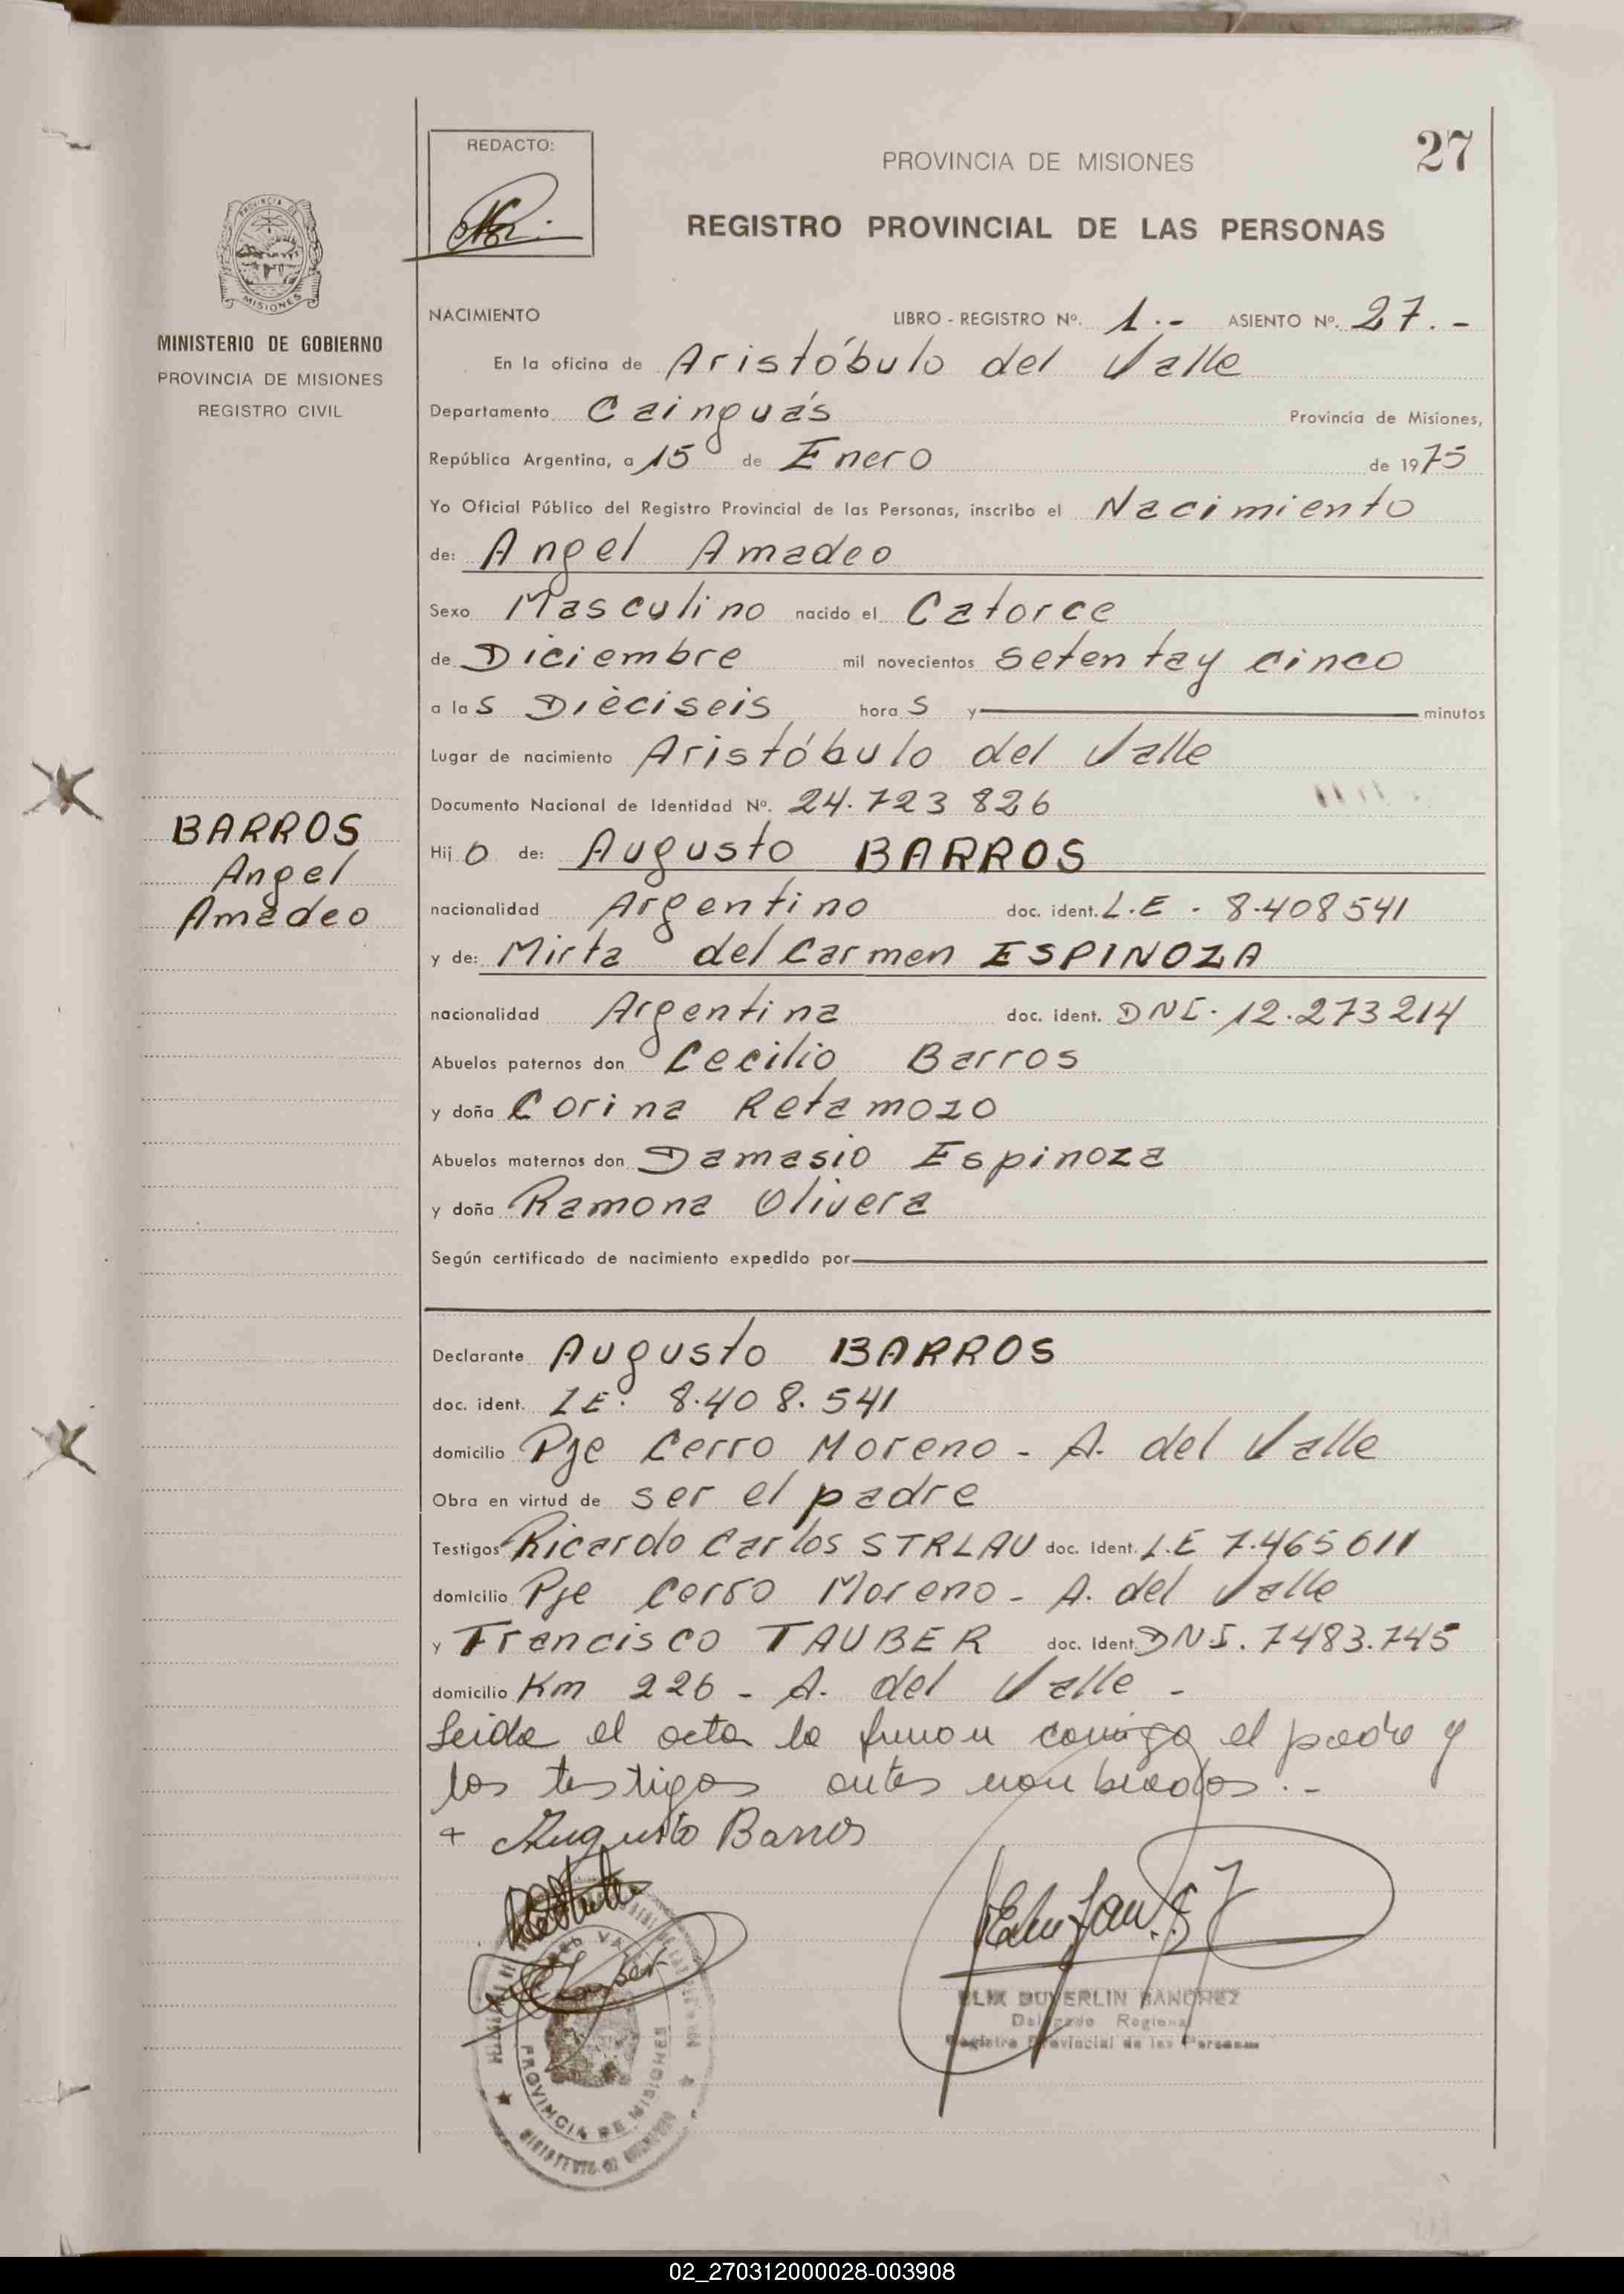 27
REDACTO:
PROVINCIA DE MISIONES
REGISTRO PROVINCIAL DE LAS PERSONAS
PROVINCIA DE
MISIONES
MINISTERIO DE GOBIERNO
PROVINCIA DE MISIONES
REGISTRO CIVIL
BARROS
Angel
Amadeo
NACIMIENTO LIBRO - REGISTRO Nº. 1.- ASIENTO Nº. 27.-
En la oficina de Aristóbulo del Valle
Departamento Cainguás Provincia de Misiones,
República Argentina, a 15 de Enero de 1975
Yo Oficial Público del Registro Provincial de las Personas, inscribo el Nacimiento
de: Angel Amadeo
Sexo Masculino nacido el Catorce
de Diciembre mil novecientos setenta y cinco
a las Dièciseis horas y minutos
Lugar de nacimiento Aristóbulo del Valle
Documento Nacional de Identidad Nº. 24.723826
Hijo de: Augusto BARROS
nacionalidad Argentino doc. ident. L.E - 8.408541
y de: Mirta del Carmen ESPINOZA
nacionalidad Argentina doc. ident. DNI. 12.273214
Abuelos paternos don Cecilio Barros
y doña Corina Retamozo
Abuelos maternos don Damasio Espinoza
y doña Ramona Olivera
Según certificado de nacimiento expedido por
Declarante Augusto BARROS
doc. ident. LE. 8.408.541
domicilio Pje Cerro Moreno - A. del Valle
Obra en virtud de ser el padre
Testigos Ricardo Carlos STRLAU doc. Ident. L.E 7.465611
domicilio Pje Cerro Moreno - A. del Valle
y Francisco TAUBER doc. Ident. DNI. 7483.745
domicilio Km 226 - A. del Valle -
Leida el acta la firman conmigo el padre y
los testigos antes nombrados.-
+ Augusto Barros
ELIX DUVERLIN SANCHEZ
Delegado Regional
Registro Provincial de las Personas
PROVINCIA DE MISIONES
02_270312000028-003908